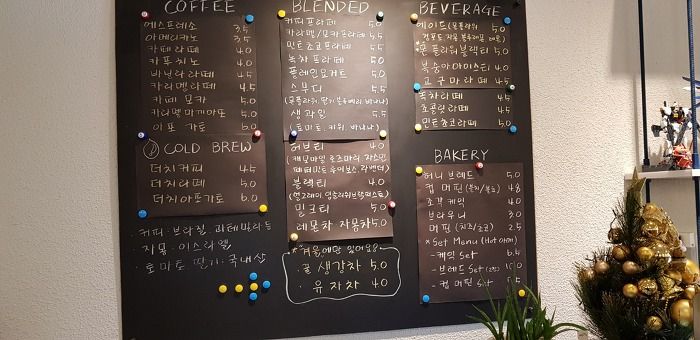 COFFEE
에스프레소 3.5
아메리카노 3.5
카페라떼 4.0
카푸치노 4.0
바닐라라떼 4.5
카라멜라떼 4.5
카페모카 4.5
카라멜마끼아또 5.0
아포가토 6.0
COLD BREW
더치커피 4.5
더치라떼 5.0
더치아포가토 6.0
커피: 브라질, 과테말라 등
자몽: 이스라엘
토마토 딸기: 국내산
BLENDED
커피프라페 5.0
카라멜/모카프라페 5.5
민트초코프라페 5.5
녹차프라페 5.0
플레인요거트 5.0
스무디 5.5
생과일 5.5
(토마토, 키위, 바나나)
허브티 4.0
(캐모마일 로즈마리 자스민
페퍼민트 루이보스 라벤더)
블랙티 4.0
밀크티 5.0
레몬차 자몽차 5.0
*겨울에만 있어요*
꿀생강차 5.0
유자차 4.0
BEVERAGE
5.0
블랙티 5.0
복숭아아이스티 4.0
고구마라떼 4.5
녹차라떼 4.5
초콜릿라떼 4.5
민트초코라떼 5.0
BAKERY
허니브레드 5.0
컵머핀 4.8
조각케익 4.0
브라우니 3.0
머핀 (치즈/초코) 2.5
*Set Menu (Hot 아메)
-케익 Set 6.5
-브레드 Set
-컵머핀 Set